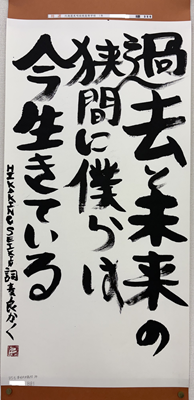 過去と未来の
狭間に僕らは
今生きている
HIKAKIN&SEIKIN詞 春良かく